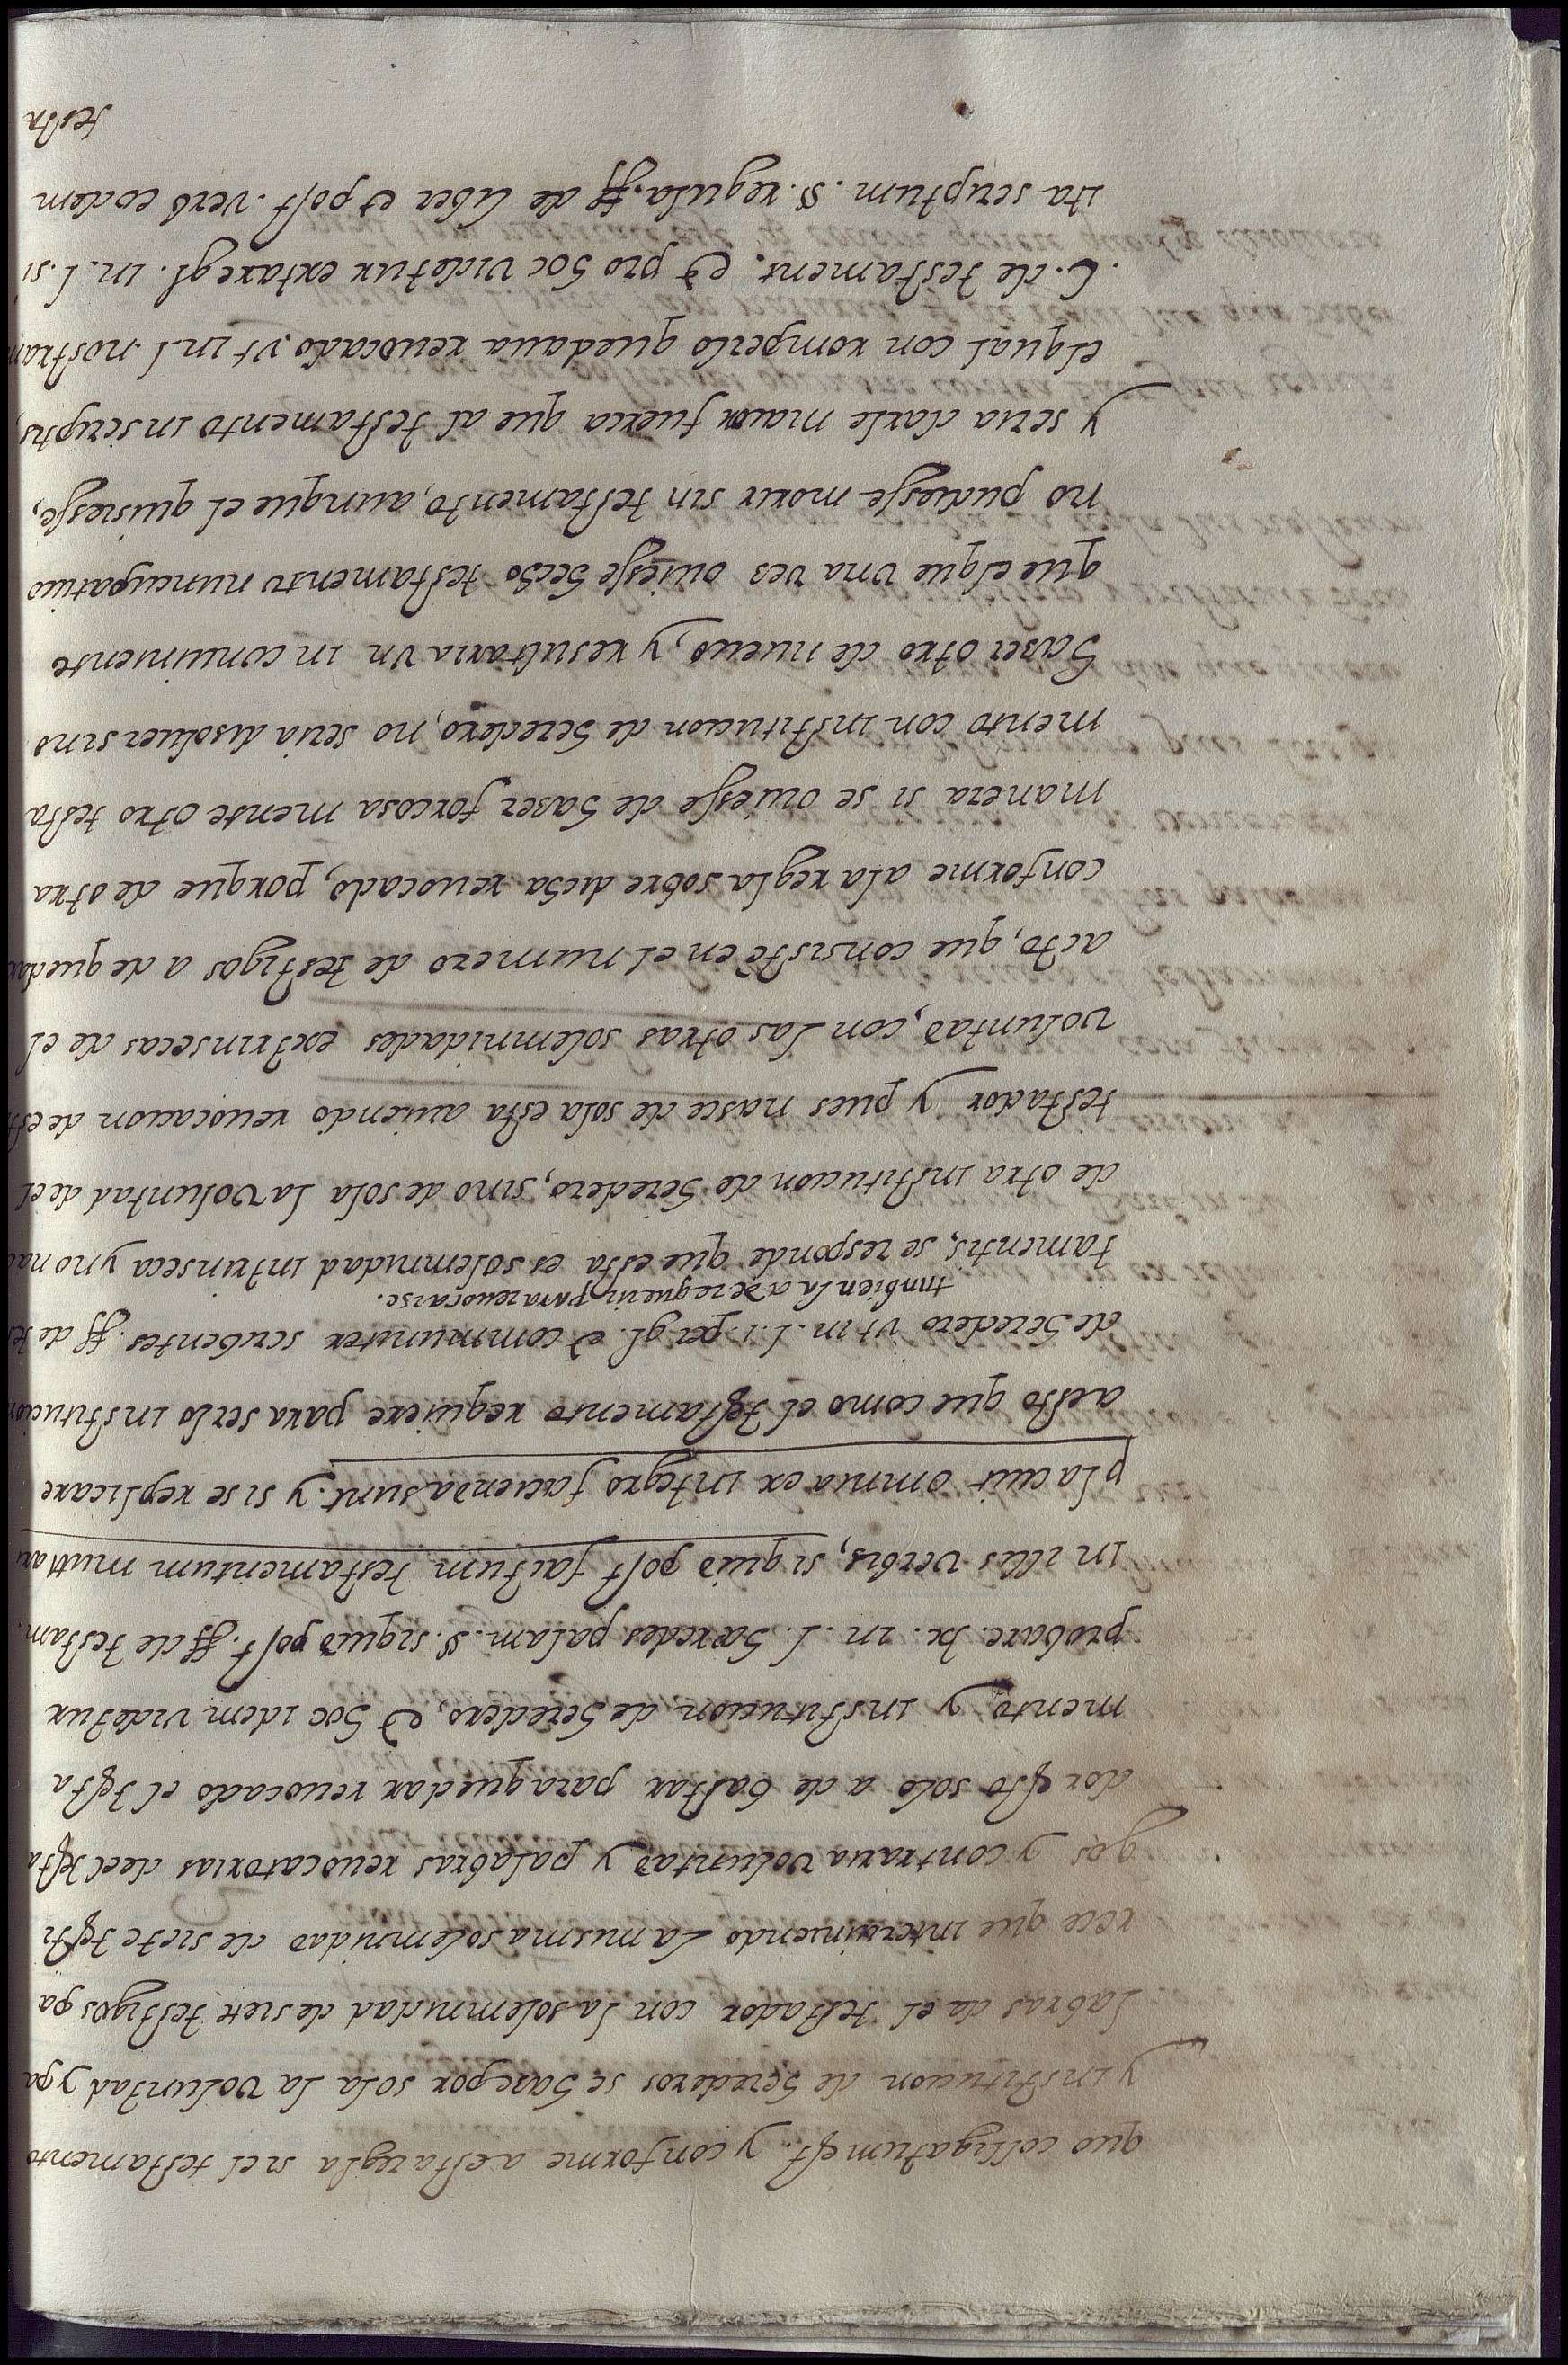 quo colligatum est. y conforme a esta regla si el testamento
y institucion de herederos se hase por sola la voluntad y pa
labras de el testador con la solemnidad de siete testigos pa
rece que interviniendo la misma solemnidad de siete testi
gos y contraria voluntad y palabras reuocatorias de el testa
dor esto solo a de bastar para quedar reuocado el testa
mento y institucion de heredero, et hoc idem videtur
probare. tx. in. l. hæredes palam. §. si quid post. ff de testam.
in illis verbis, si quid post factum testamentum mutari
placuit omnia ex integro facienda sunt. y si se replicare
a esto que como el testamento requiere para serlo institucion
de heredero vt in. l. 1. per gl. et communiter scribentes. ff de tes
tambien la a de requerir para reuocarse.
tamentis, se responde que esta es solemnidad intrinseca y no nace
de otra institucion de heredero, sino de sola la voluntad de el
testador y pues nasce de sola esta auiendo reuocacion de esta
voluntad, con las otras solemnidades extrinsecas de el
acto, que consisté en el numero de testigos a de quedar
conforme a la regla sobre dicha reuocado, porque de otra
manera si se ouiesse de haser forcosa mente otro testa
mento con institucion de heredero, no seria disoluer sino
haser otro de nueuo, y resultaria vn inconuiniente
que el que vna ves ouiesse hecho testamento nuncupatiuo
no pudiesse morir sin testamento, aunque el quisiesse,
y seria darle maior fuerca que al testamento inscriptis,
el qual con romperlo quedaua reuocado, vt in l. nostram
C. de testament. et pro hoc videtur extare gl. in. l. si
ita scriptum. §. regula. ff de liber et post. verb eodem
testa